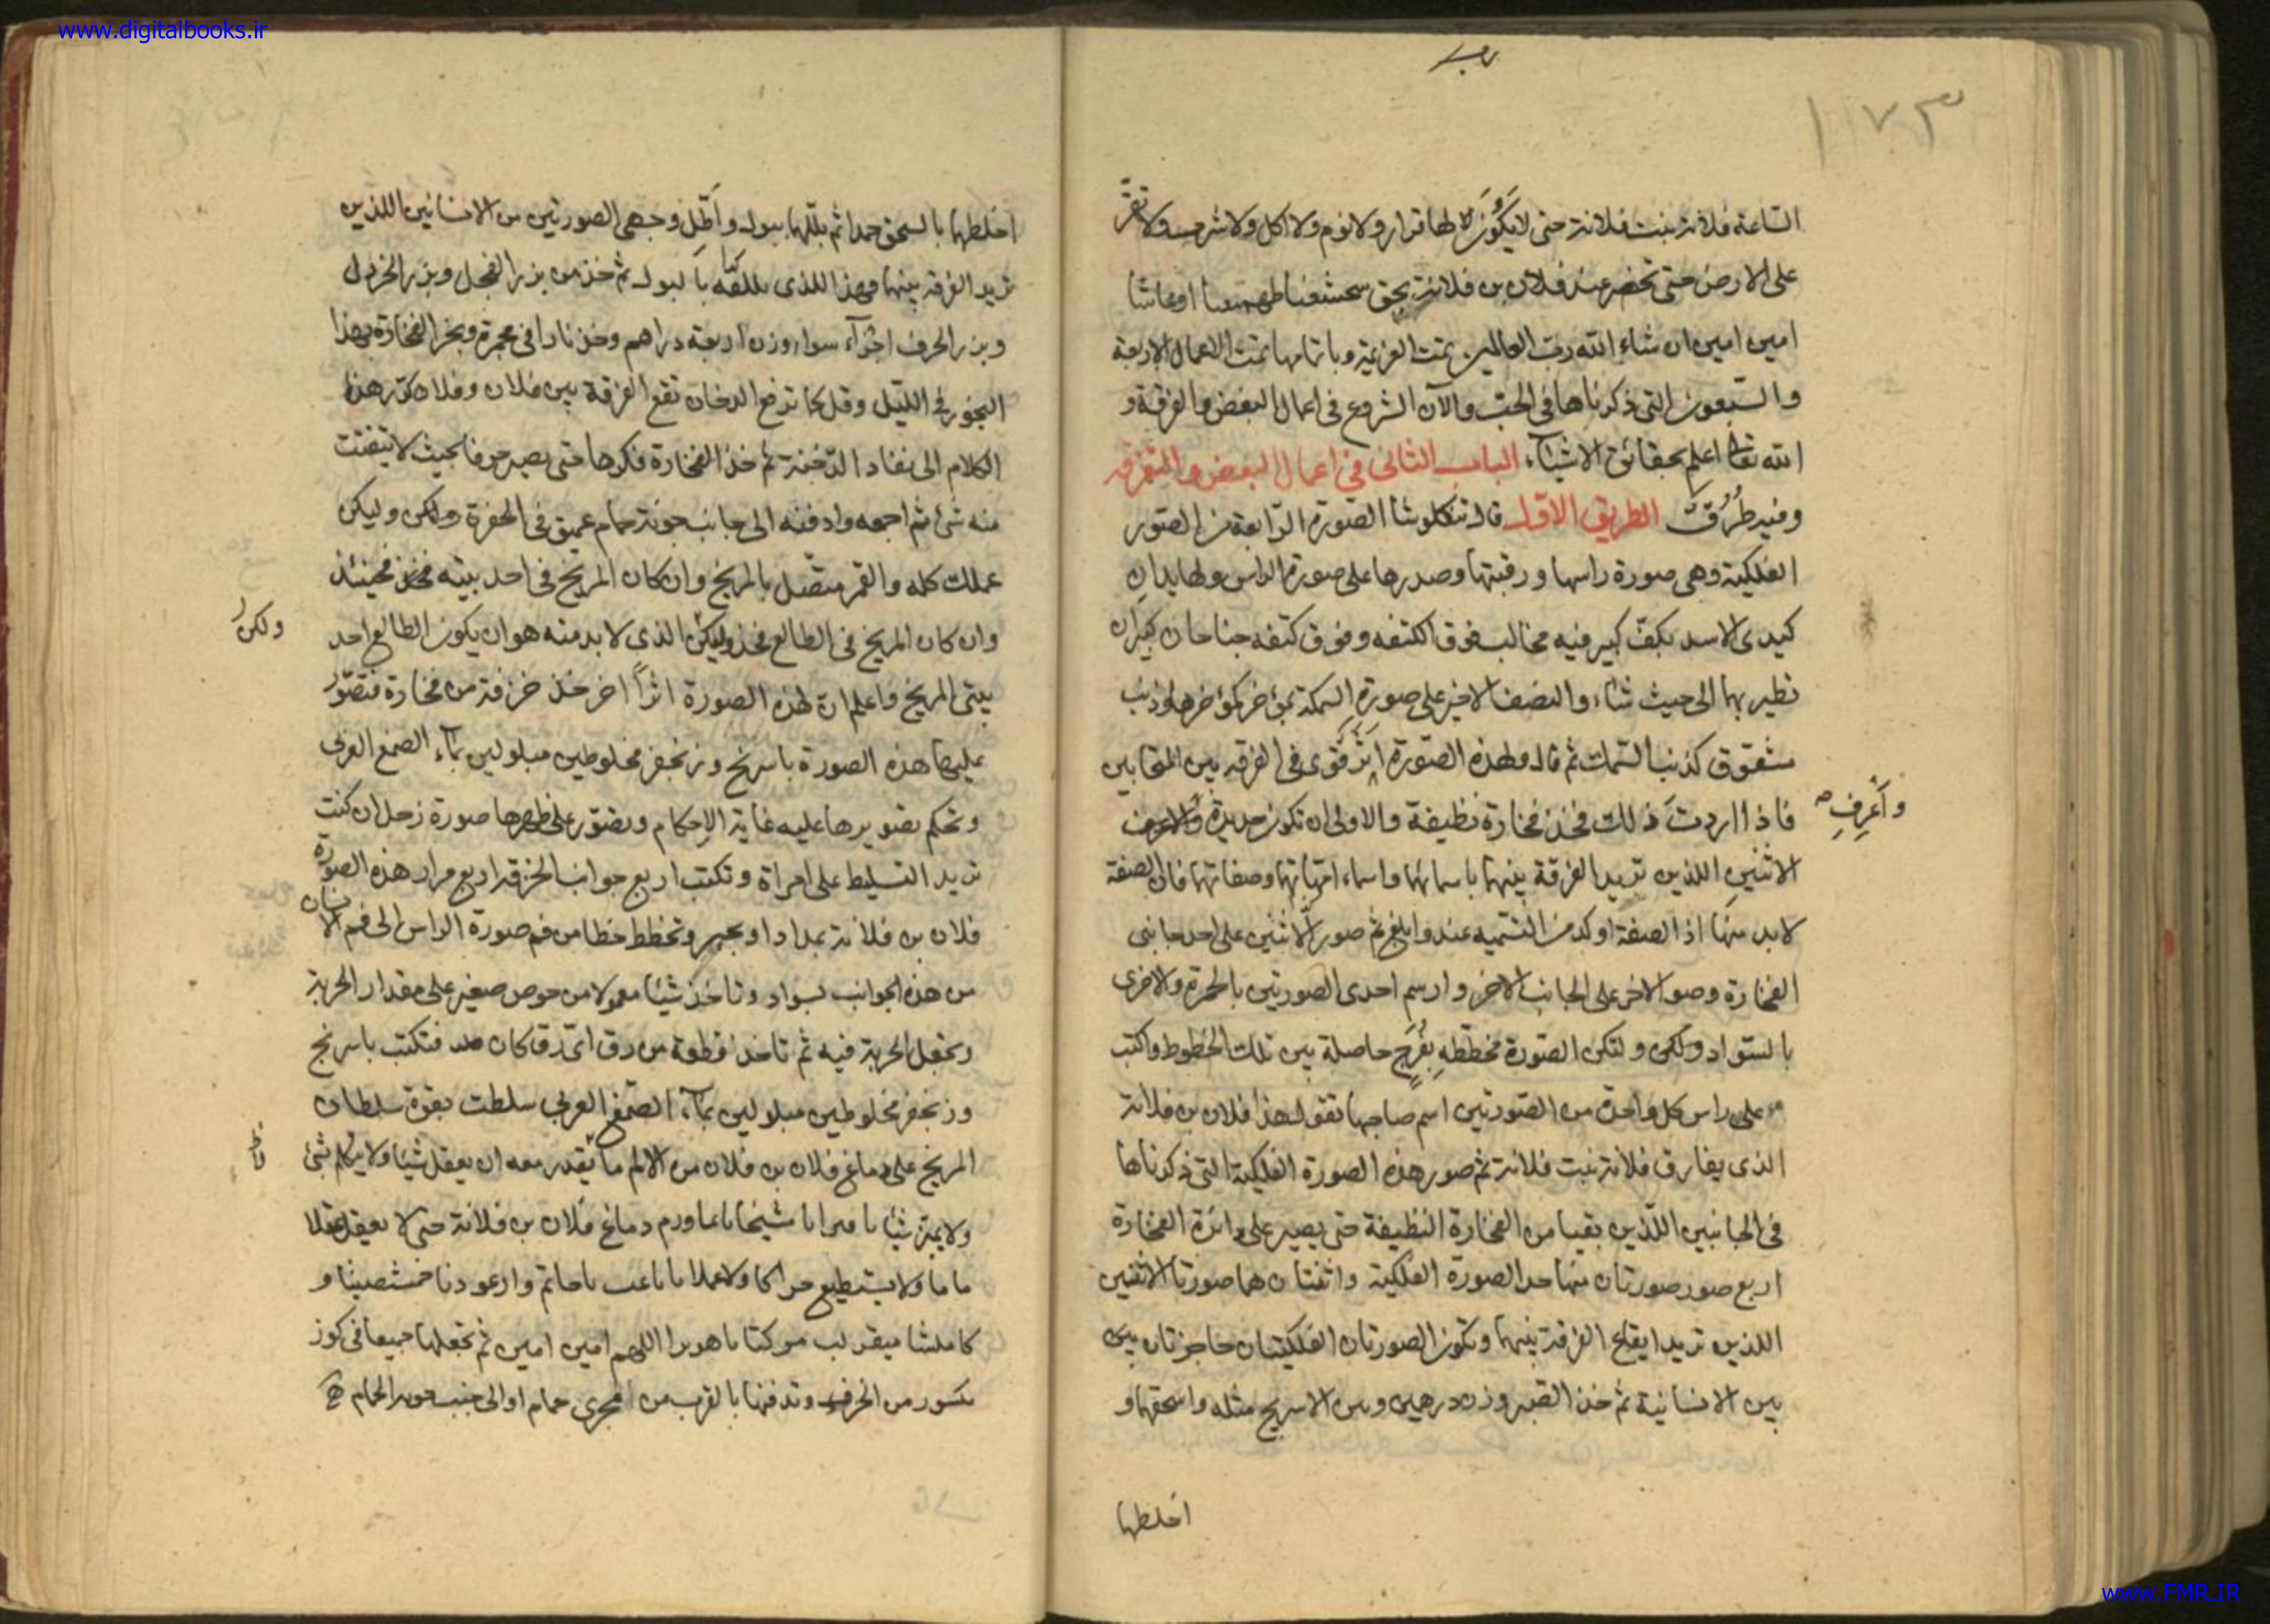 www.digitalbooks.ir
١٧٣
الساعة فلانة بنت فلانة حتى لا يكون لها قرار ولا نوم ولا اكل ولا شرب ولا تقر
على الارض حتى تحضر عند فلان بن فلانة بحق
امين امين ان شاء الله رب العالمين تمت العزيمة وباتمامها تمت الاعمال الاربعة
والسبعون التى ذكرناها فى الحب والآن الشروع فى اعمال البغض والفرقة و
الله تعالى اعلم بحقائق الاشياء الباب الثانى فى اعمال البغض والتفرقه
وفيه طُرُق الطريق الاول قال تنكلوشا الصورة الرابعة من الصور
الفلكية وهى صورة راسها ورقبتها وصدرها على صورة الراس ولها يدان
كيدى الاسد بكف كبير فيه مخالب فوق الكتفه وفوق كتفه جناحان كبيران
تطير بهما الى حيث شاء والنصف الاخير على صورة السمكة وذنب
مشقوق كذنب السمك ثم قال ولهذه الصورة اثر قوى فى الفرقه بين المتحابين
فاذا اردت ذلك فخذ فخارة نظيفة والاولى ان تكون جديدة
واَعْرِفِ
الاثنين اللذين تريد الفرقة بينهما باسمائهما واسماء امهاتهما وصفاتهما فان الصفة
لابد منها اذ الصفة اوكد من التسميه عندو ابلغ ثم صور الاثنين على احد جانبى
الفخارة وصو الاخر على الجانب الاخر وارسم احدى الصورتين بالحمرة والاخرى
بالسواد ولكن ولتكن الصورة مخططه بفُرَجٍ حاصلة بين تلك الخطوط واكتب
على راس كل واحدة من الصورتين اسم صاحبها تقول هذا فلان بن فلانة
الذى يفارق فلانة بنت فلانة ثم صور هذه الصورة الفلكية التى ذكرناها
فى الجانبين اللذين بقيا من الفخارة النظيفة حتى يصير على دائرة الفخارة
اربع صور صورتان منها حد الصورة الفلكية واثنتان هما صورتا الاثنين
اللذين تريد ايقاع الفرقة بينهما وتكون الصورتان الفلكيتان حاجزتان بين
بين الانسانية ثم خذ الصبر وزن درهمين ومن الاسرنج مثله واسحقهما و
اخلطهما
اخلطهما بالسحق جدا ثم بللهما ببول واَطّل وجهى الصورتين من الانسانين اللذين
تريد الفرقه بينهما وهذا اللذى بالبول ثم خذ من بزر الفجل وبزر الخردل
وبزر الحرف اجزآء سواء وزن اربعة دراهم وخذ نارا فى مجمرة وبخر الفخارة بهذا
البخور فى الليل وقل كما ترفع الدخان تقع الفرقة بين فلان وفلان كرر هذا
الكلام الى نفاد الدخنة ثم خذ الفخارة فكسرها حتى يصير خزفا بحيث لا يتفتت
منه شئ ثم اجمعه وادفنه الى جانب حمام عميق فى الحفرة ولكن وليكن
عملك كله والقمر متصل بالمريخ وان كان المريخ فى احد بيتيه فحينئذ
وان كان المريخ فى الطالع فخذ وليكن الذى لابد منه هو ان يكون الطالع احد
ولكن
بيتى المريخ واعلم ان لهذه الصورة اثراً اخر خذ خزفة من فخارة فتصور
عليها هذه الصورة باسرنج وزنجفر مخلوطين مبلولين بمآء الصمغ العربى
وتحكم تصويرها عليه غاية الاحكام وتصور على ظهرها صورة زحل ان كنت
تريد التسليط على امراة وتكتب اربع جوانب الخزفة اربع مرار هذه الصورة
فلان بن فلانة بمداد او بحبر وتخطط خطا من فم صورة الراس الى فم الانسان
من هذه الجوانب بسواد وتاخذ شيئا معمولا من خوص صغير على مقدار الخربة
وتجعل الخربة فيه ثم تاخذ قطعة من رق اى رق كان فتكتب باسرنج
وزنجفر مخلوطين مبلولين بمآء الصمغ العربى سلطت بقوة سلطان
المريخ على دماغ فلان بن فلان من الالم ما يقدر معه ان يعقل شيئا ولا يتكلم بشئ
ولا يميز شيئا دماغ فلان بن فلانة حتى لا يعقل عقلا
ولا يستطيع حراكا ولا عملا
اللهم امين امين ثم تجعلها جميعا فى كوز
مكسور من الخزف وتدفنها بالقرب من مجرى حمام او الى جنب الحمام
www.FMR.IR